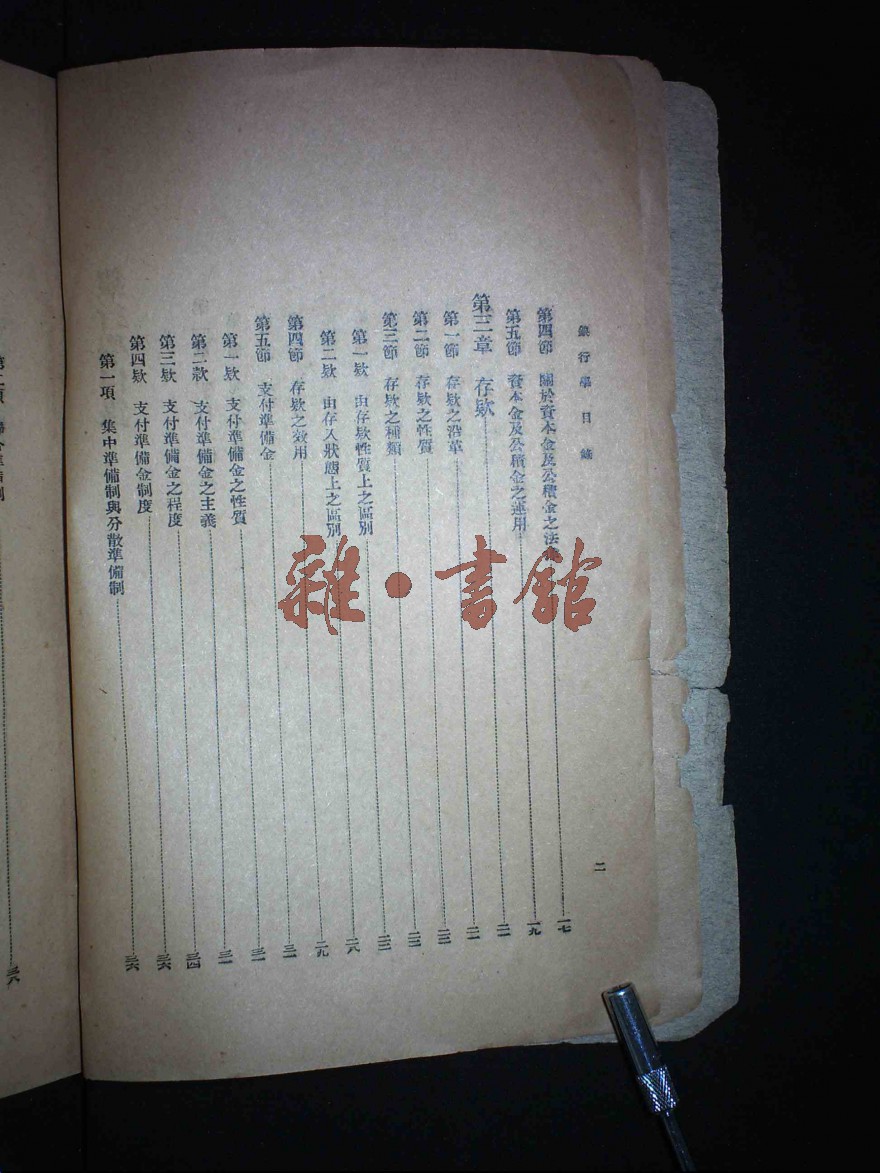 銀行學目錄
二
第四節 關於資本金及公積金之法 一七
第五節 資本金及公積金之運用 一九
第三章 存款
第一節 存款之沿革
第二節 存款之性質
第三節 存款之種類
第一款 由存款性質上之區別 二八
第二款 由存入狀態上之區別 二九
第四節 存款之效用
第五節 支付準備金
第一款 支付準備金之性質
第二款 支付準備金之主義 三四
第三款 支付準備金之程度 三六
第四款 支付準備金制度 三六
第一項 集中準備制與分散準備制
三八
雜·書館